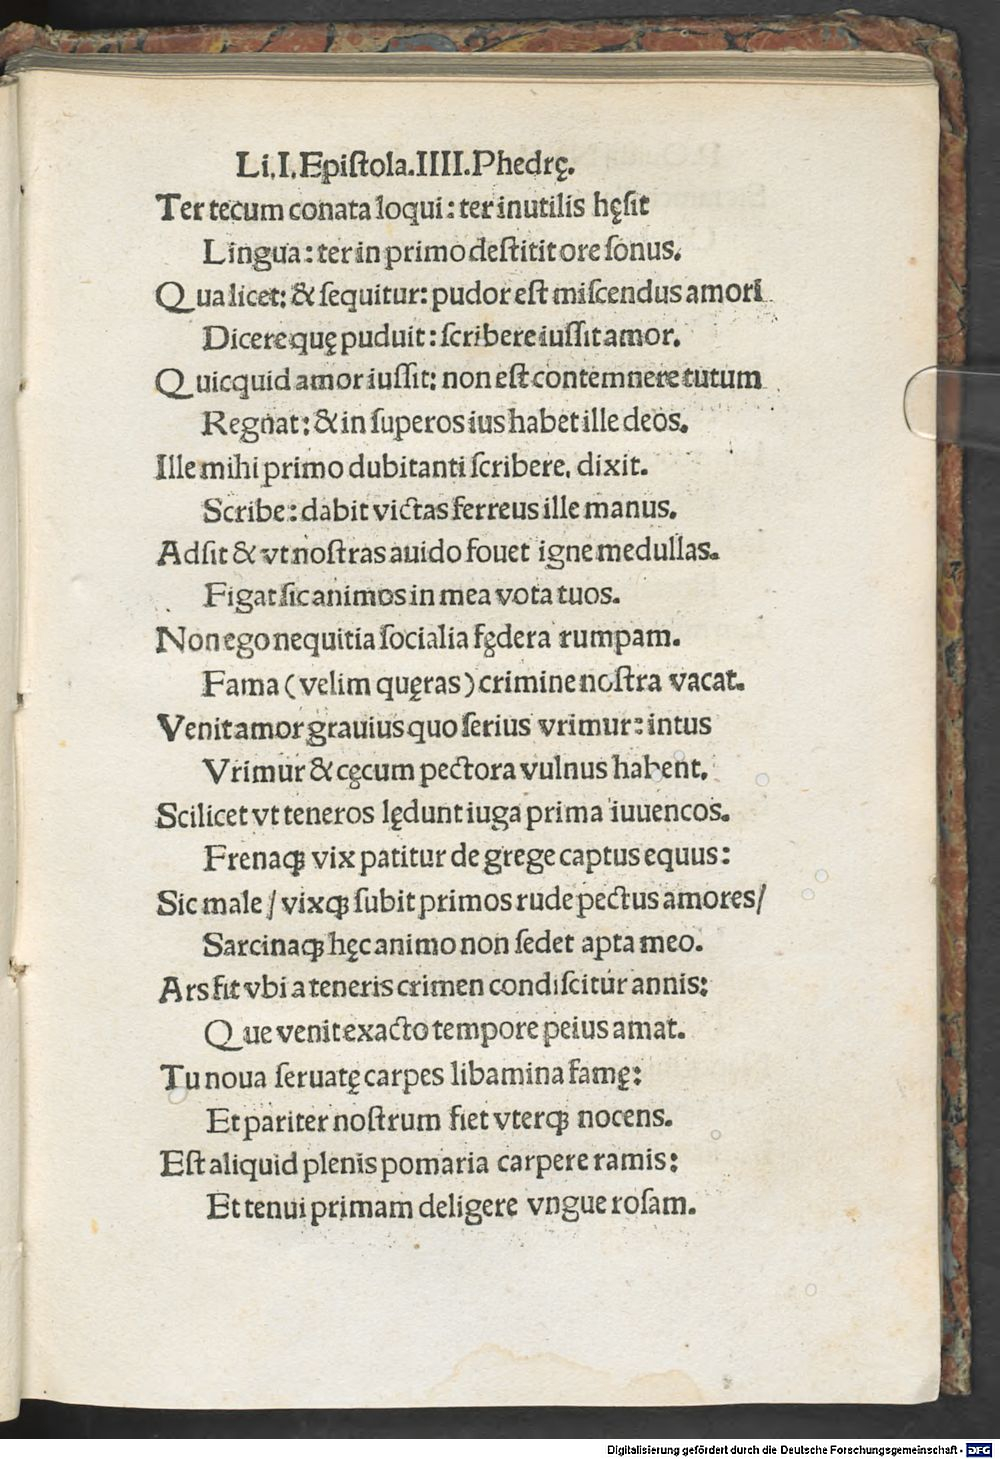 Li.I.Epiſtola.IIII.Phedrę.
Ter tecum conata loqui: ter inutilis hęſit
Lingua: ter in primo deſtitit ore ſonus.
Qua licet: & ſequitur: pudor eſt miſcendus amori
Dicere quę puduit: ſcribere iuſſit amor.
Quicquid amor iuſſit: non eſt contemnere tutum
Regnat: & in ſuperos ius habet ille deos.
Ille mihi primo dubitanti ſcribere. dixit.
Scribe: dabit victas ferreus ille manus.
Adſit & vt noſtras auido fouet igne medullas.
Figat ſic animos in mea vota tuos.
Non ego nequitia ſocialia fędera rumpam.
Fama (velim quęras) crimine noſtra vacat.
Venit amor grauius quo ſerius vrimur: intus
Vrimur & cęcum pectora vulnus habent.
Scilicet vt teneros lędunt iuga prima iuuencos.
Frenaqꝫ vix patitur de grege captus equus:
Sic male / vixqꝫ ſubit primos rude pectus amores/
Sarcinaqꝫ hęc animo non ſedet apta meo.
Ars fit vbi a teneris crimen condiſcitur annis:
Que venit exacto tempore peius amat.
Tu noua ſeruatę carpes libamina famę:
Et pariter noſtrum fiet vterqꝫ nocens.
Eſt aliquid plenis pomaria carpere ramis:
Et tenui primam deligere vngue roſam.
Digitalisierung gefördert durch die Deutsche Forschungsgemeinschaft - DFG